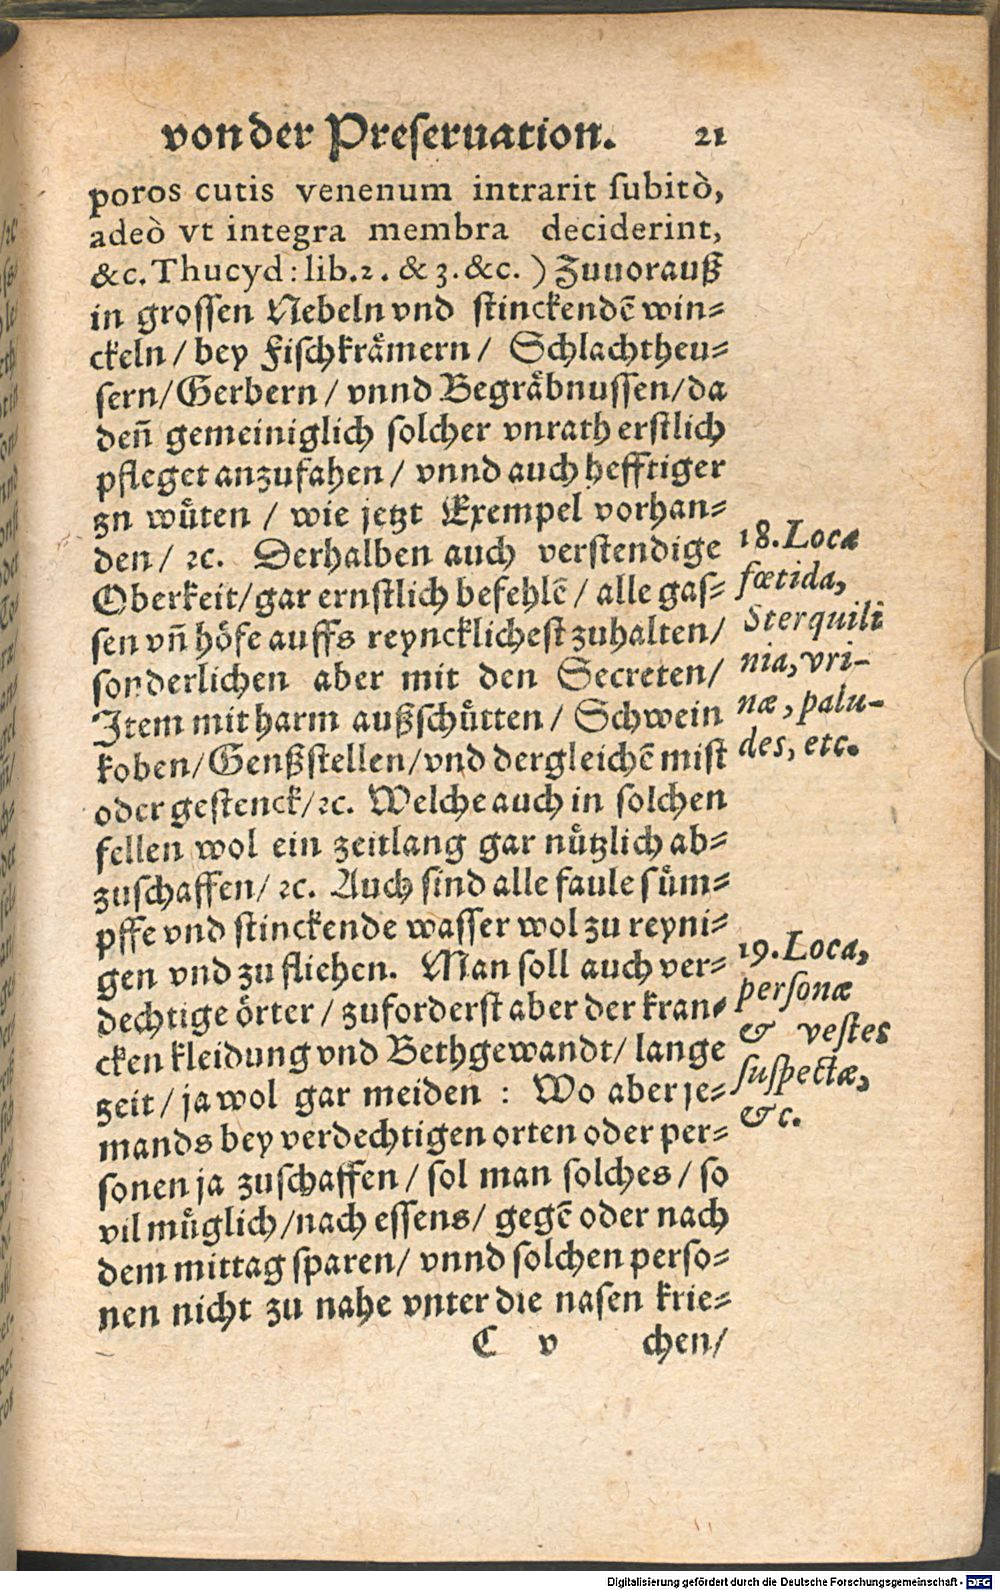 von der Preseruation. 21
poros cutis venenum intrarit ſubitò,
adeò vt integra membra deciderint,
&c. Thucyd: lib. 2. & 3. &c. ) Zuuorauß
in groſſen Nebeln vnd ſtinckendē win⸗
ckeln / bey Fiſchkrämern / Schlachtheu⸗
ſern / Gerbern / vnnd Begräbnuſſen / da
deñ gemeiniglich ſolcher vnrath erſtlich
pfleget anzufahen / vnnd auch hefftiger
zn wüten / wie jetzt Exempel vorhan⸗
den / ꝛc. Derhalben auch verſtendige
Oberkeit / gar ernſtlich befehlē / alle gaſ⸗
ſen vñ höfe auffs reyncklicheſt zuhalten /
ſonderlichen aber mit den Secreten /
Item mit harm außſchütten / Schwein
koben / Genßſtellen / vnd dergleichē miſt
oder geſtenck / ꝛc. Welche auch in ſolchen
fellen wol ein zeitlang gar nützlich ab⸗
zuſchaffen / ꝛc. Auch ſind alle faule ſüm⸗
pffe vnd ſtinckende waſſer wol zu reyni⸗
gen vnd zu fliehen. Man ſoll auch ver⸗
dechtige örter / zuforderſt aber der kran⸗
cken kleidung vnd Bethgewandt / lange
zeit / ja wol gar meiden : Wo aber je⸗
mands bey verdechtigen orten oder per⸗
ſonen ja zuſchaffen / ſol man ſolches / ſo
vil müglich / nach eſſens / gegē oder nach
dem mittag ſparen / vnnd ſolchen perſo⸗
nen nicht zu nahe vnter die naſen krie⸗
C v chen /
18. Loca
fœtida,
Sterquili
nia, vri-
næ, palu-
des, etc.
19. Loca,
perſonæ
& veſtes
ſuſpectæ,
&c.
Digitalisierung gefördert durch die Deutsche Forschungsgemeinschaft - DFG